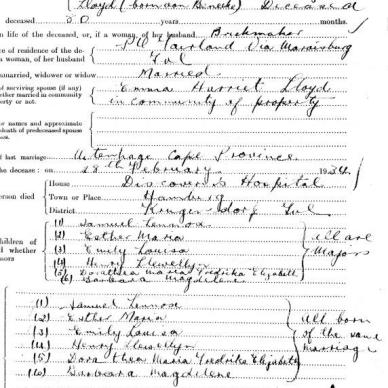 Lloyd (born van Deceased
deceased 50 years months.
n life of the deceased, or, if a woman, of her husband Brickmaker
ce of residence of the de-
a woman, of her husband P.O. Fairland Via Maraisburg
Tvl
unmarried, widower or widow Married
of surviving spouse (if any)
ether married in community
perty or not. Emma Harriet Lloyd
in community of property
ce names and approximate
death of predeceased spouse
f last marriage Uitenhage Cape Province
he decease: on 18th February 1934
House Discoverers Hospital
Town or Place Hamberg
District Krugersdorp Tvl
erson died
children of
d whether
nors
(1) Samuel Lennox
(2) Esther Maria
(3) Emily Louisa
(4) Henry Llewellyn
(5) Dorathea Maria Fredrika Elizabeth
(6) Barbara Magdilene
all are
Majors
(1) Samuel Lennox
(2) Esther Maria
(3) Emily Louisa
(4) Henry Llewellyn
(5) Dorathea Maria Fredrika Elizabeth
(6) Barbara Magdilene
all born
of the same
marriage